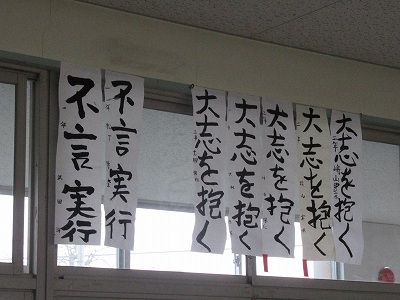 不言実行
不言実行
大志を抱く
大志を抱く
大志を抱く
大志を抱く
大志を抱く